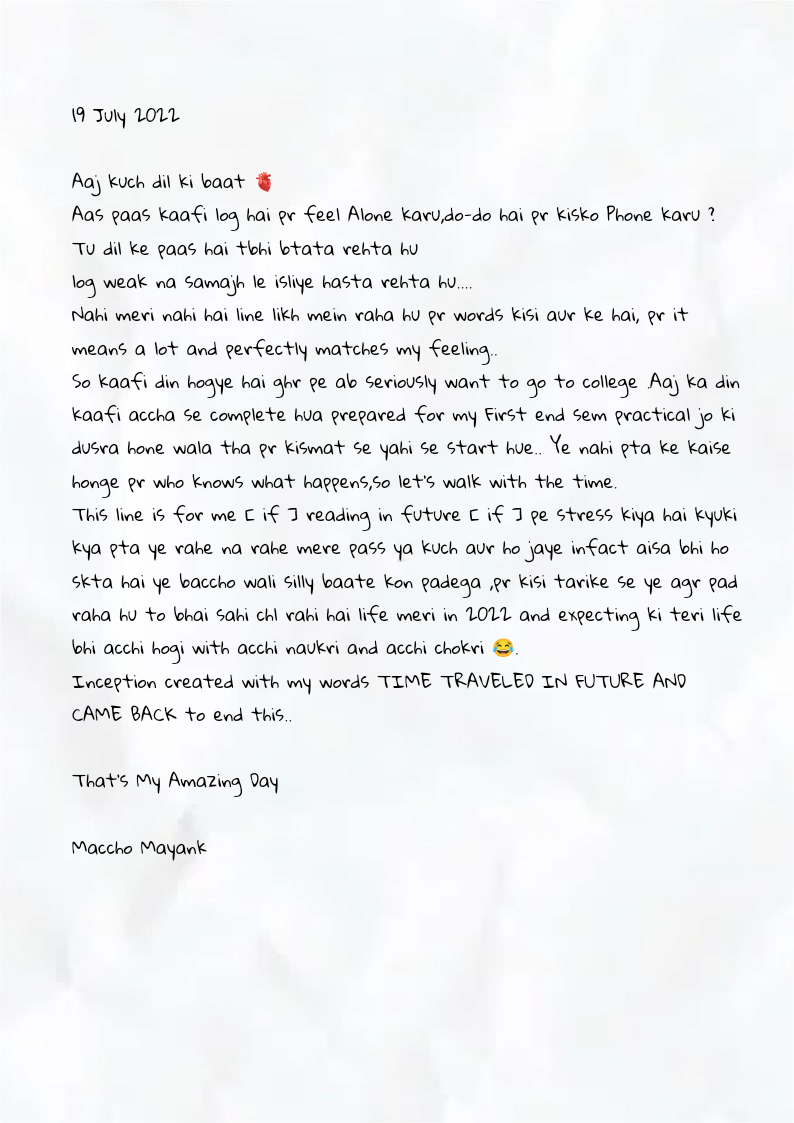 19 July 2022
Aaj kuch dil ki baat 🫀
Aas paas kaafi log hai pr feel Alone karu,do-do hai pr kisko Phone karu ?
Tu dil ke paas hai tbhi btata rehta hu
log weak na samajh le isliye hasta rehta hu....
Nahi meri nahi hai line likh mein raha hu pr words kisi aur ke hai, pr it
means a lot and perfectly matches my feeling..
So kaafi din hogye hai ghr pe ab seriously want to go to college .Aaj ka din
kaafi accha se complete hua prepared for my First end sem practical jo ki
dusra hone wala tha pr kismat se yahi se start hue.. Ye nahi pta ke kaise
honge pr who knows what happens,so let's walk with the time.
This line is for me [ if ] reading in future [ if ] pe stress kiya hai kyuki
kya pta ye rahe na rahe mere pass ya kuch aur ho jaye infact aisa bhi ho
skta hai ye baccho wali silly baate kon padega ,pr kisi tarike se ye agr pad
raha hu to bhai sahi chl rahi hai life meri in 2022 and expecting ki teri life
bhi acchi hogi with acchi naukri and acchi chokri 😂.
Inception created with my words TIME TRAVELED IN FUTURE AND
CAME BACK to end this..
That's My Amazing Day
Maccho Mayank